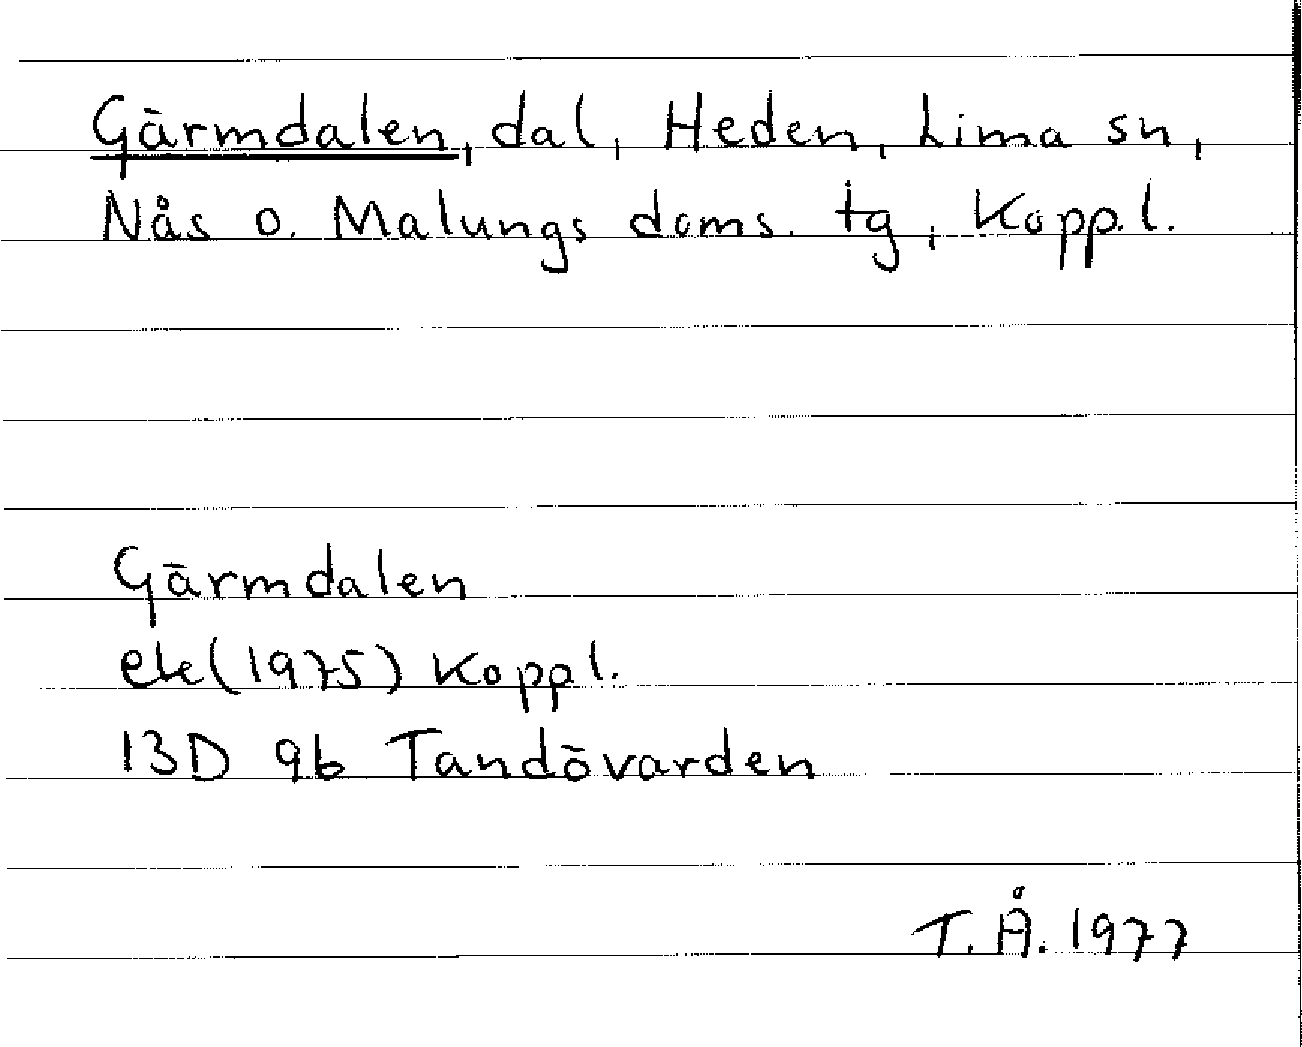 Gärmdalen, dal, Heden, Lima sn,
Nås o. Malungs doms. tg, Kopp.l.
Gärmdalen
ek (1975) Koppl.
13D 9b Tandövarden
T.Å. 1977